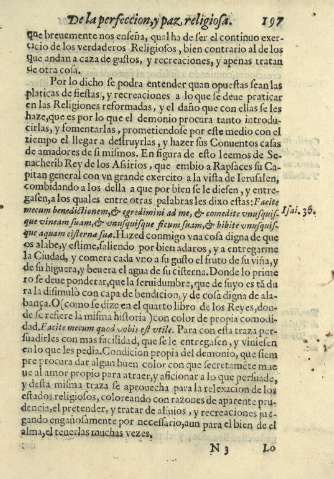 De la perfeccion, y paz religiosa. 197
que breuemente nos enseña, qual ha de ser el continuo exer-
cicio de los verdaderos Religiosos, bien contrario al de los
que andan a caza de gustos, y recreaciones, y apenas tratan
de otra cosa.
Por lo dicho se podra entender quan opuestas sean las
platicas de fiestas, y recreaciones a lo que se deue praticar
en las Religiones reformadas, y el daño que con ellas se les
haze, que es por lo que el demonio procura tanto introdu-
cirlas, y fomentarlas, prometiendose por este medio con el
tiempo el llegar a destruyrlas, y hazer sus Conuentos casas
de amadores de si mismos. En figura de esto leemos de Se-
nacherib Rey de los Asirios, que embio a Rapsaces su Ca-
pitan general con vn grande exercito a la vista de Ierusalen,
combidando a los della a que por bien se le diesen, y entre-
gasen, a los quales entre otras palabras les dixo estas: Facite
mecum benedictionem, & egredimini ad me, & comedite vnusquis- Isai. 36.
que vineam suam, & vnusquisque ficum suam, & bibite vnusquis-
que aquam cisternæ suæ. Hazed conmigo vna cosa digna de que
os alabe, y estime, saliendo por bien a daros, y a entregarme
la Ciudad, y comera cada vno a su gusto el fruto de su viña, y
de su higuera, y beuera el agua de su cisterna. Donde lo prime
ro se deue ponderar, que la seruidumbre, que de suyo es tã du
ra la disimulò con capa de bendicion, y de cosa digna de ala-
bança. O (como se dize en el quarto libro de los Reyes, don-
de se refiere la misma historia) con color de propia comodi-
dad. Facite mecum quod vobis est vtile. Para con esta traza per-
suadirles con mas facilidad, que se le entregasen, y viniesen
en lo que les pedia. Condicion propia del demonio, que siem
pre procura dar algun buen color con que secretamẽte mue
ue al amor propio para atraer, y aficionar a lo que persuade,
y desta misma traza se aprouecha para la relaxacion de los
estados religiosos, coloreando con razones de aparente pru-
dencia, el pretender, y tratar de aliuios, y recreaciones juz-
gando engañosamente por necessario, aun para el bien de el
alma, el tenerlas muchas vezes.
N 3 Lo